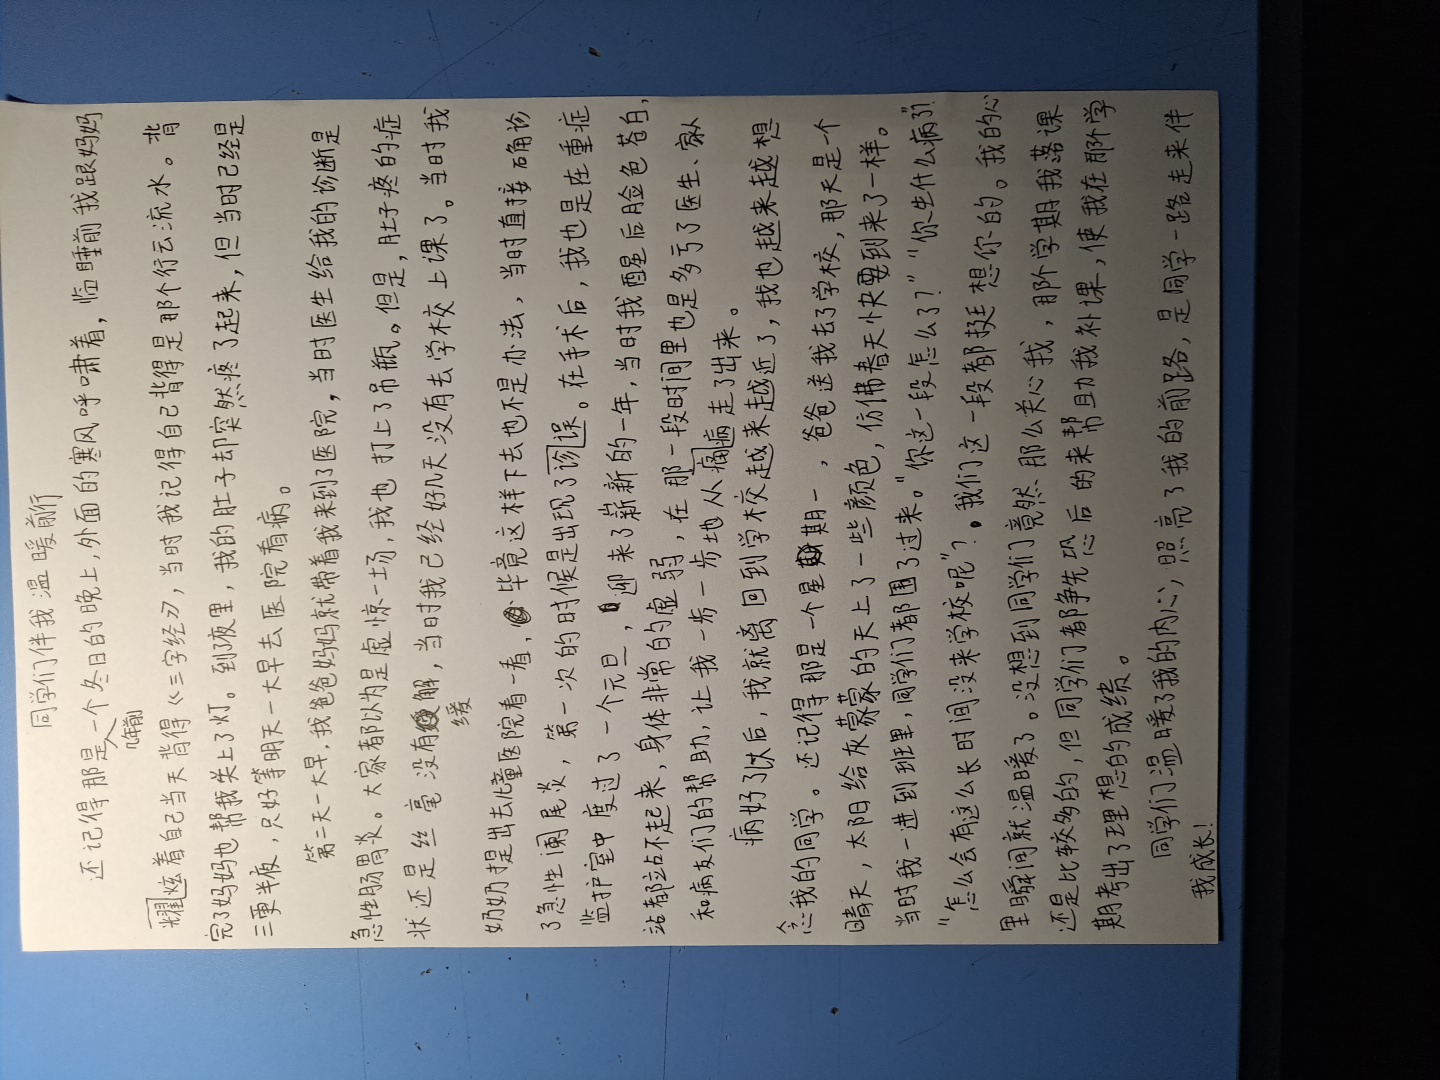 同学们伴我温暖前行
还记得那是一个冬日的晚上,外面的寒风呼啸着,临睡前我跟妈妈
几年前
耀炫着自己当天背得《三字经》,当时我记得自己背得是那个行云流水。背
完了妈妈也帮我关上了灯。到了夜里,我的肚子却突然疼了起来,但当时已经是
三更半夜,只好等明天一大早去医院看病。
第二天一大早,我爸爸妈妈就带着我来到了医院,当时医生给我的诊断是
急性肠胃炎。大家都以为是虚惊一场,我也打上了吊瓶。但是,肚子疼的症
状还是丝毫没有解,当时我已经好几天没有去学校上课了。当时我
缓
奶奶提出去儿童医院看一看,毕竟这样下去也不是办法,当时直接确诊
了急性阑尾炎,第一次的时候是出现了诊误。在手术后,我也是在重症
监护室中度过了一个元旦,迎来了崭新的一年,当时我醒后脸色苍白,
站都站不起来,身体非常的虚弱,在那一段时间里也是多亏了医生、家人
和病友们的帮助,让我一步一步地从痛病走了出来。
病好了以后,我就离回到学校越来越近了,我也越来越想
念我的同学。还记得那是一个星期一,爸爸送我去了学校,那天是个
晴天,太阳给灰蒙蒙的天上了一些颜色,仿佛春天快要到来了一样。
当时我一进到班里,同学们都围了过来。“你这一段怎么了?”“你生什么病了?”
“怎么会有这么长时间没来学校呢”?。我们这一段都挺想你的。我的心
里瞬间就温暖了。没想到同学们竟然那么关心我,那个学期我落课
还是比较多的,但同学们都争先恐后的来帮助我补课,使我在那个学
期考出了理想的成绩。
同学们温暖了我的内心,照亮了我的前路,是同学一路走来伴
我成长!